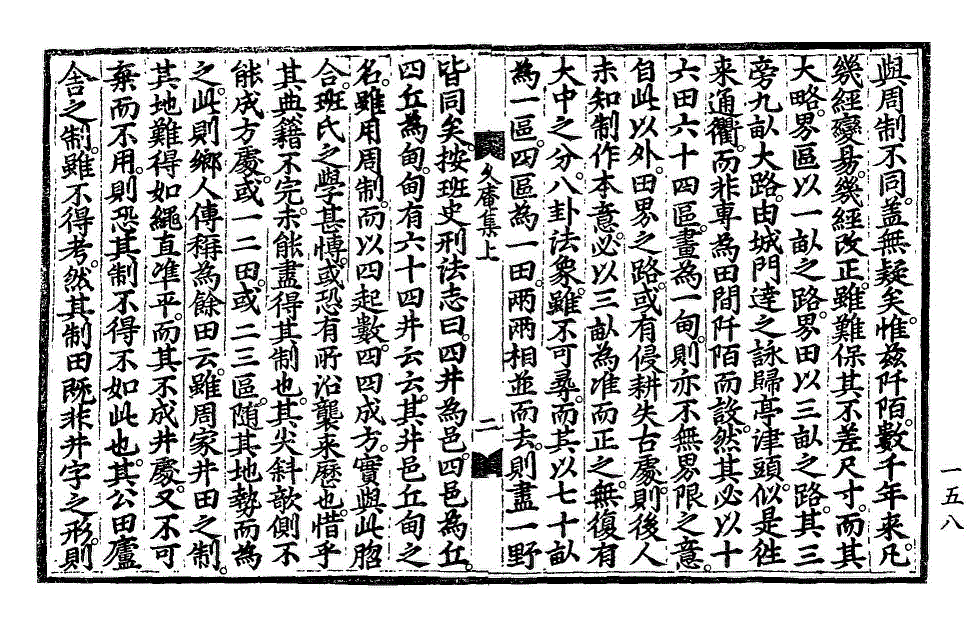 與周制不同。盖無疑矣。惟茲阡陌。數千年來。凡
幾經變易。幾經改正。雖難保其不差尺寸。而其
大略。界區以一畝之路。界田以三畝之路。其三
旁九畝大路。由城門達之詠歸亭津頭。似是徃
来通衢。而非專為田間阡陌而設。然其必以十
六田六十四區。畫為一甸。則亦不無界限之意。
自此以外。田界之路。或有侵耕失古處。則後人
未知制作本意。必以三畝為准而正之。無復有
大中之分。八卦法象。雖不可尋。而其以七十畝
為一區。四區為一田。兩兩相並而去。則盡一野
久庵集上
二
皆同矣。按班史刑法志曰。四井為邑。四邑為丘。
四丘為甸。甸有六十四井云云。其井邑丘甸之
名。雖用周制。而以四起數。四四成方。實與此脗
合。班氏之學甚愽。或恐有所沿襲来歷也。惜乎
其典籍不完。未能盡得其制也。其尖斜欹側不
能成方處。或一二田。或二三區。随其地勢而為
之。此則鄉人傳稱為餘田云。雖周家井田之制。
其地難得如繩直准平。而其不成井處。又不可
棄而不用。則恐其制不得不如此也。其公田廬
舍之制。雖不得考。然其制田旣非井字之形。則
一五八